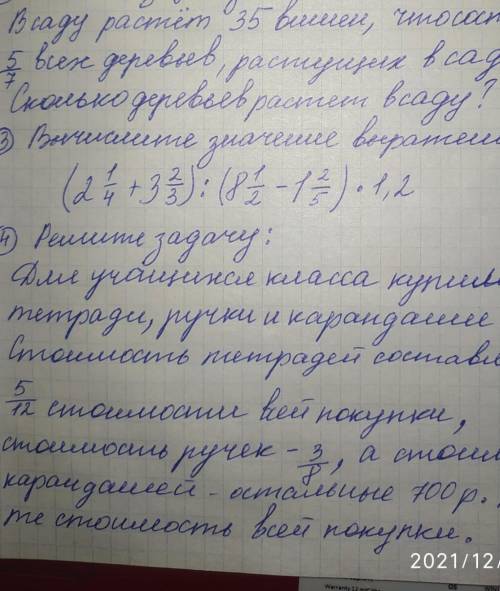 В саду растёт 35 вишен, что сост
5/7 всех деревьев, растущих в сад
Сколько деревьев растет в саду?
3 Вычислите значение выражени
(2 1/4 + 3 2/3) : (8 1/2 - 1 2/5) · 1,2
4 Решите задачу:
Для учащихся класса купили
тетради, ручки и карандаши
Стоимость тетрадей составл
5/12 стоимости всей покупки,
стоимость ручек - 3/8, а стоим
карандашей - остальные 700 р.
те стоимость всей покупки.
2021/12/